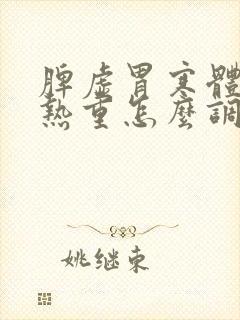 脾虛胃寒體
熱重怎麼調
姚継東